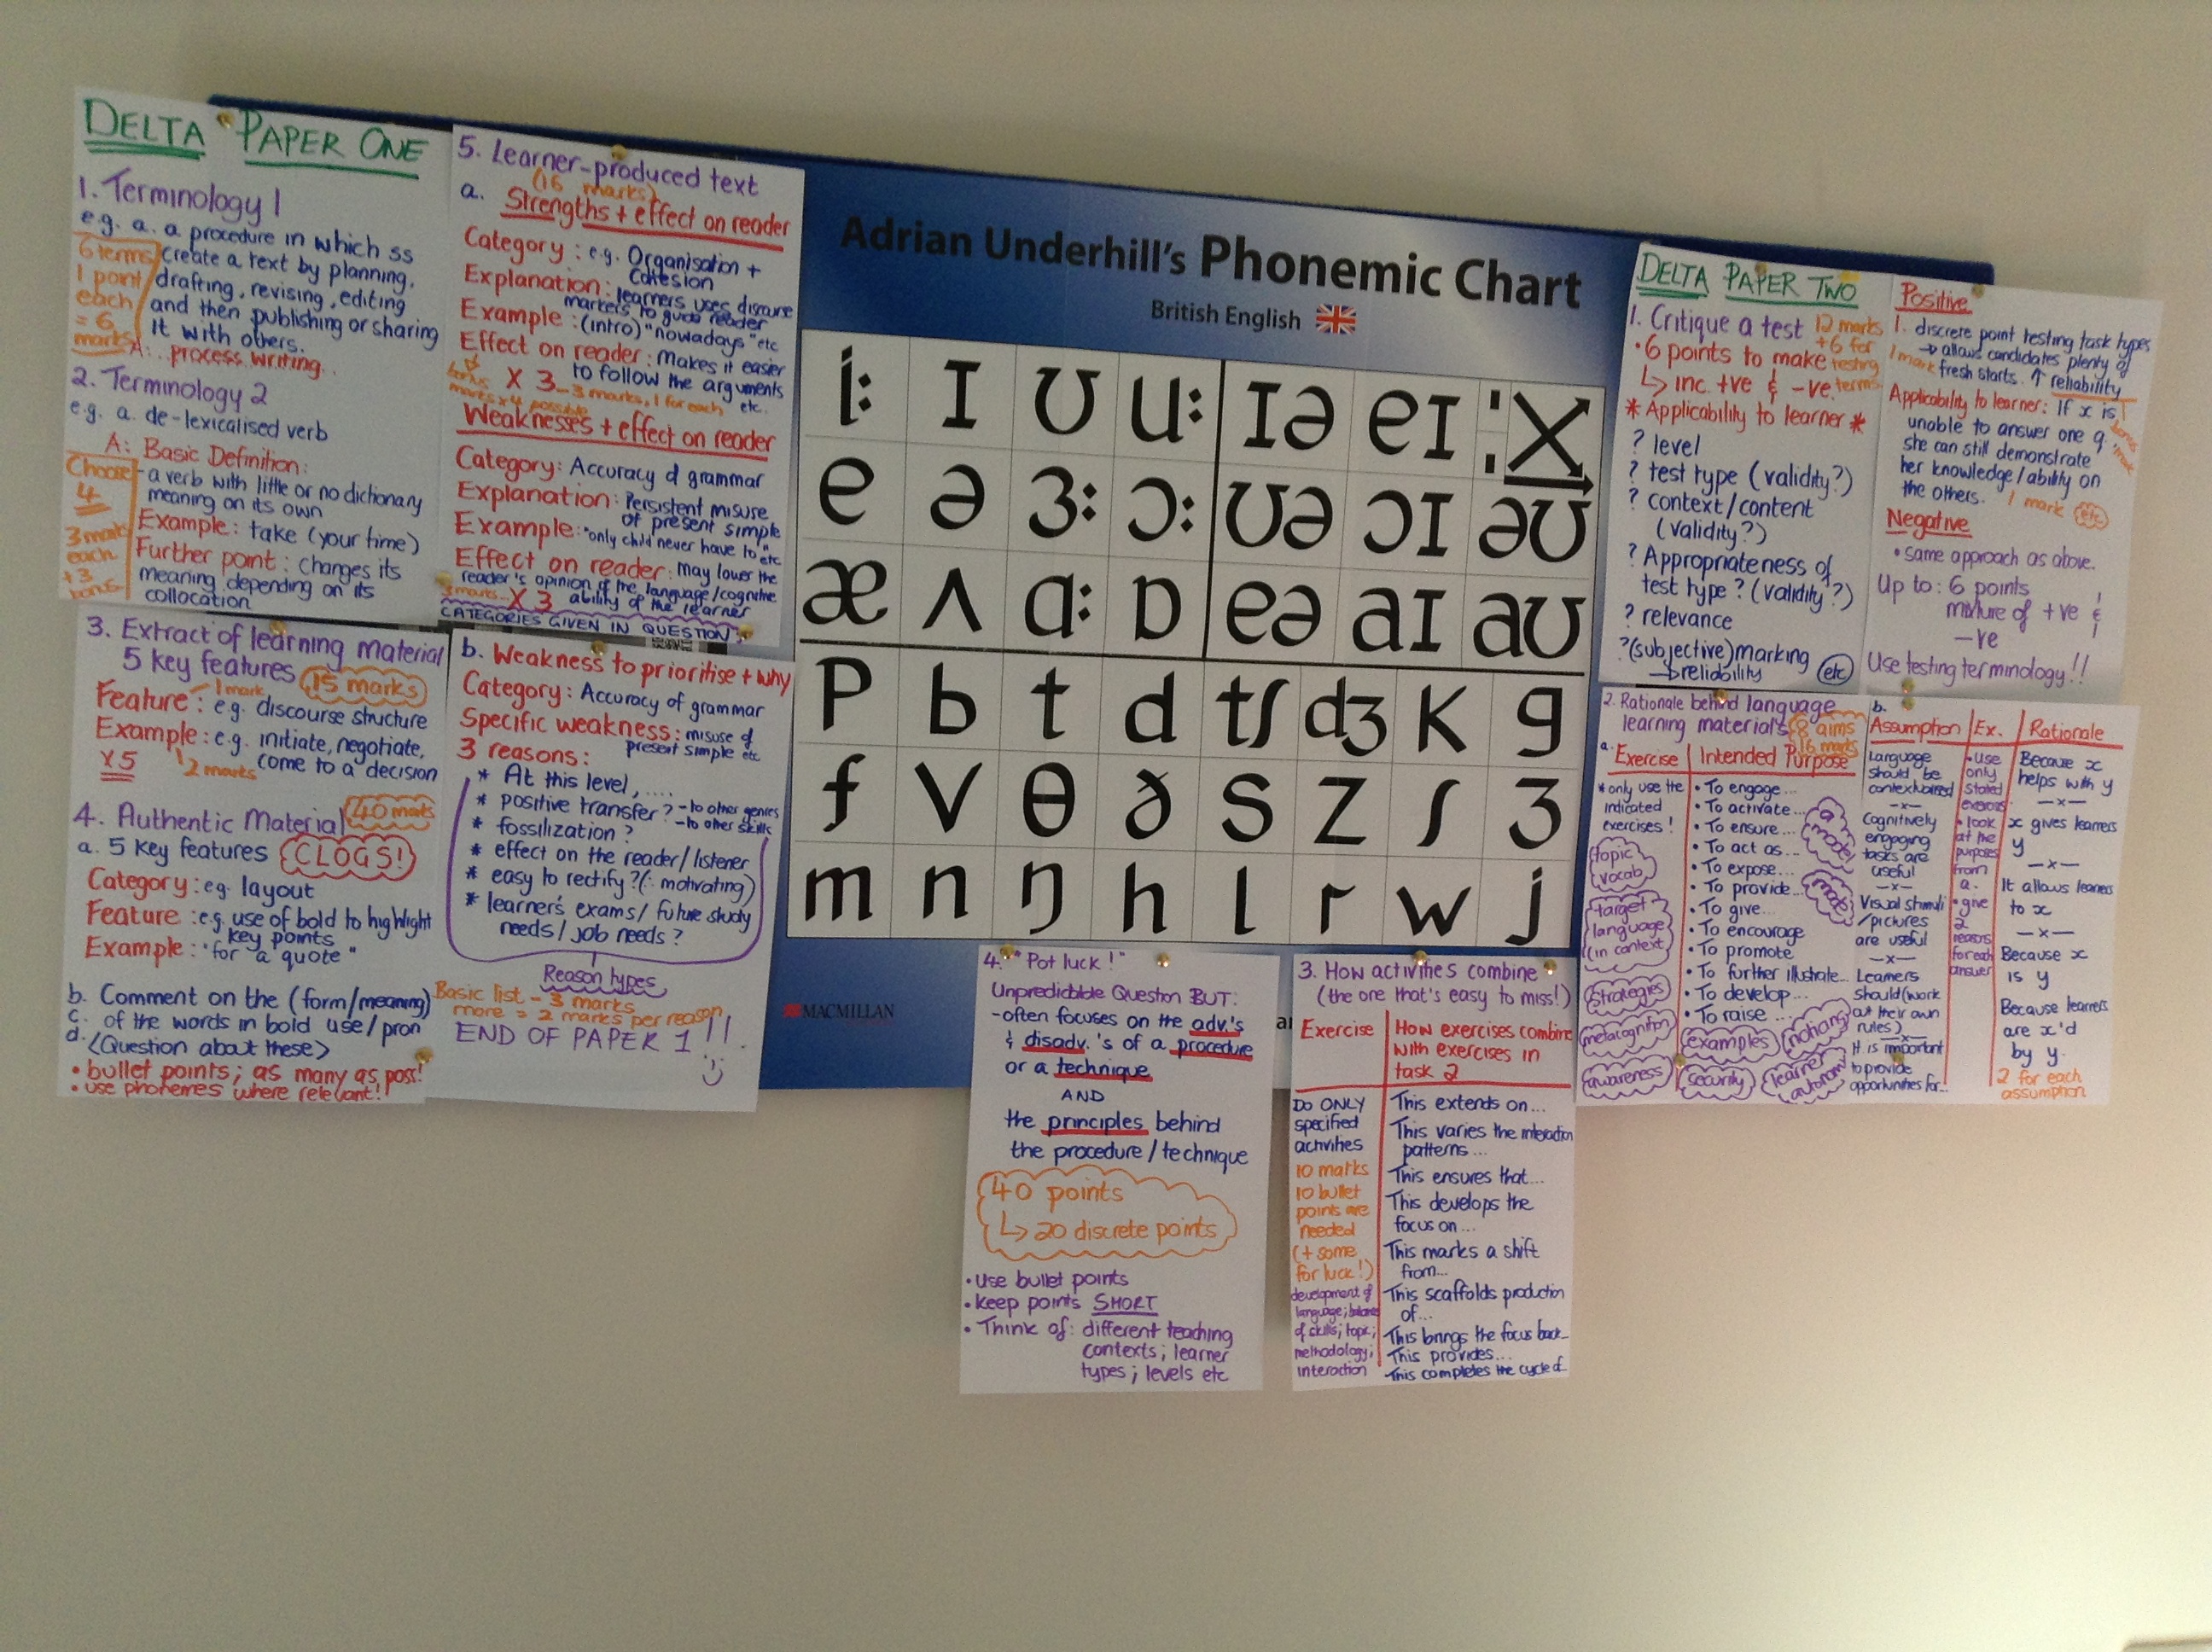 DELTA PAPER ONE
1. Terminology 1
e.g. a. a procedure in which ss
create a text by planning,
drafting, revising, editing
and then publishing or sharing
it with others.
A: process writing.
6 terms
1 point
each
= 6
marks
2. Terminology 2
e.g. a. de-lexicalised verb
A: Basic Definition:
- a verb with little or no dictionary
meaning on its own
Example: take (your time)
Further point: changes its
meaning depending on its
collocation
Choose
4
3 marks
each
+3
bonus
3. Extract of learning material
5 key features 15 marks
Feature: 1 mark
e.g. discourse structure
Example: e.g. initiate, negotiate,
come to a decision
x5
2 marks
4. Authentic Material 40 marks
a. 5 key features CLOGS!
Category: eg. layout
Feature: e.g. use of bold to highlight
key points
Example: "for a quote"
b. Comment on the (form/meaning)
c. of the words in bold use/pron
d. <Question about these>
• bullet points; as many as poss!
• use phonemes where relevant!!
5. Learner-produced text
(16 marks)
a. Strengths + effect on reader
Category: e.g. Organisation +
Cohesion
Explanation: learners uses discourse
markers to guide reader
Example: (intro) "nowadays" etc
Effect on reader: Makes it easier
to follow the arguments
etc.
x 3 - 3 marks, 1 for each
bonus
marks x4 possible
Weaknesses + effect on reader
Category: Accuracy of grammar
Explanation: Persistent misuse
of present simple
Example: "only child never have to" etc
Effect on reader: May lower the
reader's opinion of the language/cognitive
ability of the learner
3 marks x 3
CATEGORIES GIVEN IN QUESTION
b. Weakness to prioritise + why
Category: Accuracy of grammar
Specific weakness: misuse of
present simple etc
3 reasons:
* At this level, ....
* positive transfer? - to other genres
- to other skills
* fossilization?
* effect on the reader/listener
* easy to rectify? (∴ motivating)
* learner's exams/ future study
needs/job needs?
Reason types
Basic list - 3 marks
more = 2 marks per reason
END OF PAPER 1!!
Adrian Underhill's Phonemic Chart
British English
iː ɪ ʊ uː ɪə eɪ
e ə ɜː ɔː ʊə ɔɪ əʊ
æ ʌ ɑː ɒ eə aɪ aʊ
p b t d tʃ dʒ k g
f v θ ð s z ʃ ʒ
m n ŋ h l r w j
MACMILLAN
4. "Pot luck!"
Unpredictable Question BUT:
- often focuses on the adv.'s
& disadv.'s of a procedure
or a technique
AND
the principles behind
the procedure/technique
40 points
↳ 20 discrete points
• Use bullet points
• keep points SHORT
• Think of: different teaching
contexts; learner
types; levels etc
3. How activities combine
(the one that's easy to miss!)
Exercise
How exercises combine
with exercises in
task 2
Do ONLY
specified
activities
10 marks
10 bullet
points are
needed
(+ some
for luck!)
development of
language; balance
of skills; topic;
methodology;
interaction
This extends on...
This varies the interaction
patterns...
This ensures that...
This develops the
focus on...
This marks a shift
from...
This scaffolds production
of...
This brings the focus back...
This provides...
This completes the cycle of...
DELTA PAPER TWO
1. Critique a test 12 marks
+6 for
testing
terms
• 6 points to make
↳ inc. +ve & -ve
* Applicability to learner *
? level
? test type (validity?)
? context/content
(validity?)
? Appropriateness of
test type? (validity?)
? relevance
? (subjective) marking
→ reliability etc
Positive
1. discrete point testing task types
→ allows candidates plenty of
fresh starts. ↑ reliability
1 mark
Applicability to learner: If x is
unable to answer one q.
she can still demonstrate
her knowledge/ability on
the others. 1 mark etc
1 bonus mark
Negative
• same approach as above.
Up to: 6 points
mixture of +ve &
-ve
Use testing terminology!!
2. Rationale behind language
learning materials 8 aims
16 marks
a. Exercise
Intended Purpose
* only use the
indicated
exercises!
topic
vocab
target
language
(in context)
strategies
metacognition
awareness
• To engage...
• To activate...
• To ensure...
• To act as...
• To expose...
• To provide...
• To give...
• To encourage
• To promote
• To further illustrate...
• To develop...
• To raise...
a
model
examples
noticing
security
learner
autonomy
b.
Assumption
Ex.
Rationale
Language
should be
contextualised
-x-
Cognitively
engaging
tasks are
useful
-x-
Visual stimuli
/pictures
are useful
-x-
Learners
should (work
out their own
rules)
-x-
It is important
to provide
opportunities for...
• use
only
stated
exercises
• look
at the
purposes
from
a.
• give
2
reasons
for each
answer
Because x
helps with y
-x-
x gives learners
y
-x-
It allows learners
to x
-x-
Because x
is y
Because learners
are x'd
by y.
2 for each
assumption